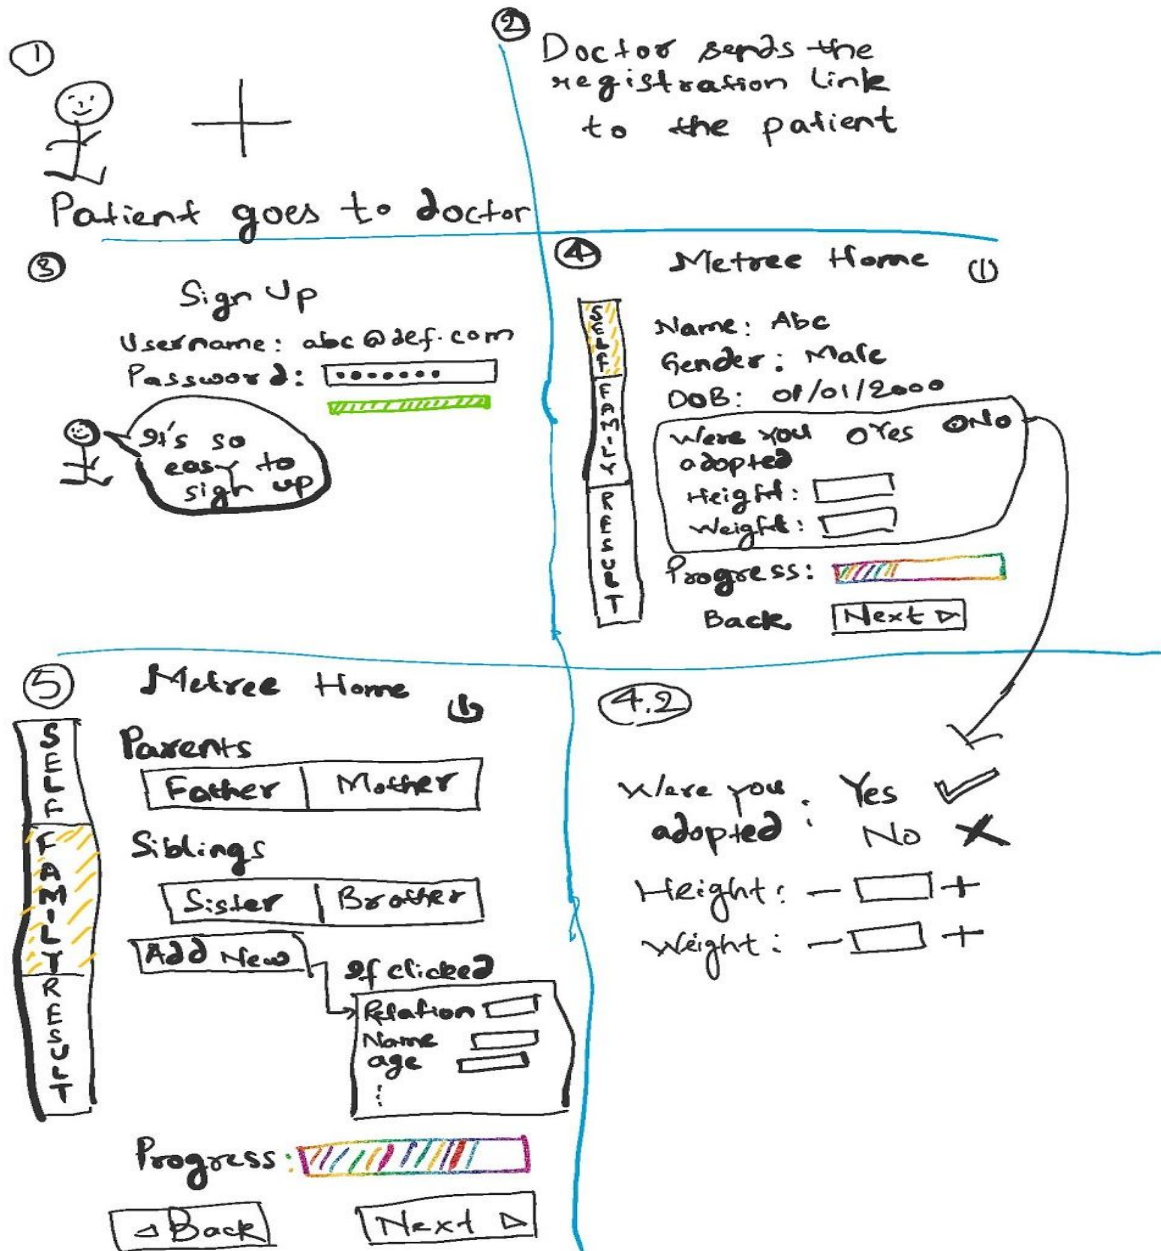 1
Patient goes to doctor
2
Doctor sends the
registration link
to the patient
3
Sign Up
Username: abc@def.com
Password:
It's so
easy to
sign up
4
Metree Home
SELF
FAMILY
RESULT
Name: Abc
Gender: Male
DOB: 01/01/2000
Were you Yes No
adopted
Height:
Weight:
Progress:
Back Next
5
Metree Home
SELF
FAMILY
RESULT
Parents
Father Mother
Siblings
Sister Brother
Add New
If clicked
Relation
Name
age
Progress:
Back Next
4.2
Were you : Yes
adopted No
Height: - +
Weight: - +